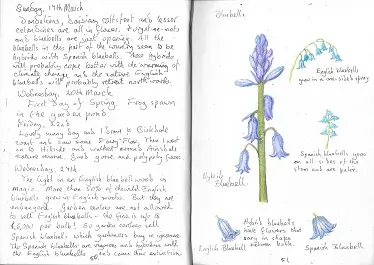 Sunday, 17th March
Dandelions, daisies, coltsfoot and lesser
celandines are all in flower. Forget-me-nots
and bluebells are just opening. All the
bluebells in this part of the country seem to be
hybrids with Spanish bluebells. These hybrids
will probably cope better with the warming of
climate change and the native English
bluebells will probably retreat north
Wednesday, 20th March
First Day of Spring. Frog spawn
in the garden pond.
Friday, 22nd
Lovely sunny day and I went to
coast and saw some Then I went
on to and walked around
nature reserve.
Wednesday, 27th
The light in an English bluebell wood is
magic. More than 50% of the world English
bluebells grow in English woods. But they are
endangered. Garden centres are not allowed
to sell English bluebells - the fine is up to
£5,000 per bulb! So garden centres sell
Spanish bluebells which gardeners buy in ignorance.
The Spanish bluebells are vigorous and hybridise with
the English bluebells and cause their extinction.
50
Bluebells
English bluebells
grow in a one-sided spray
Spanish bluebells grow
on all sides of the
stem and are paler.
Hybrid
Bluebell
Hybrid bluebells
have flowers that
vary in shape
between both.
English Bluebell
Spanish Bluebell
51